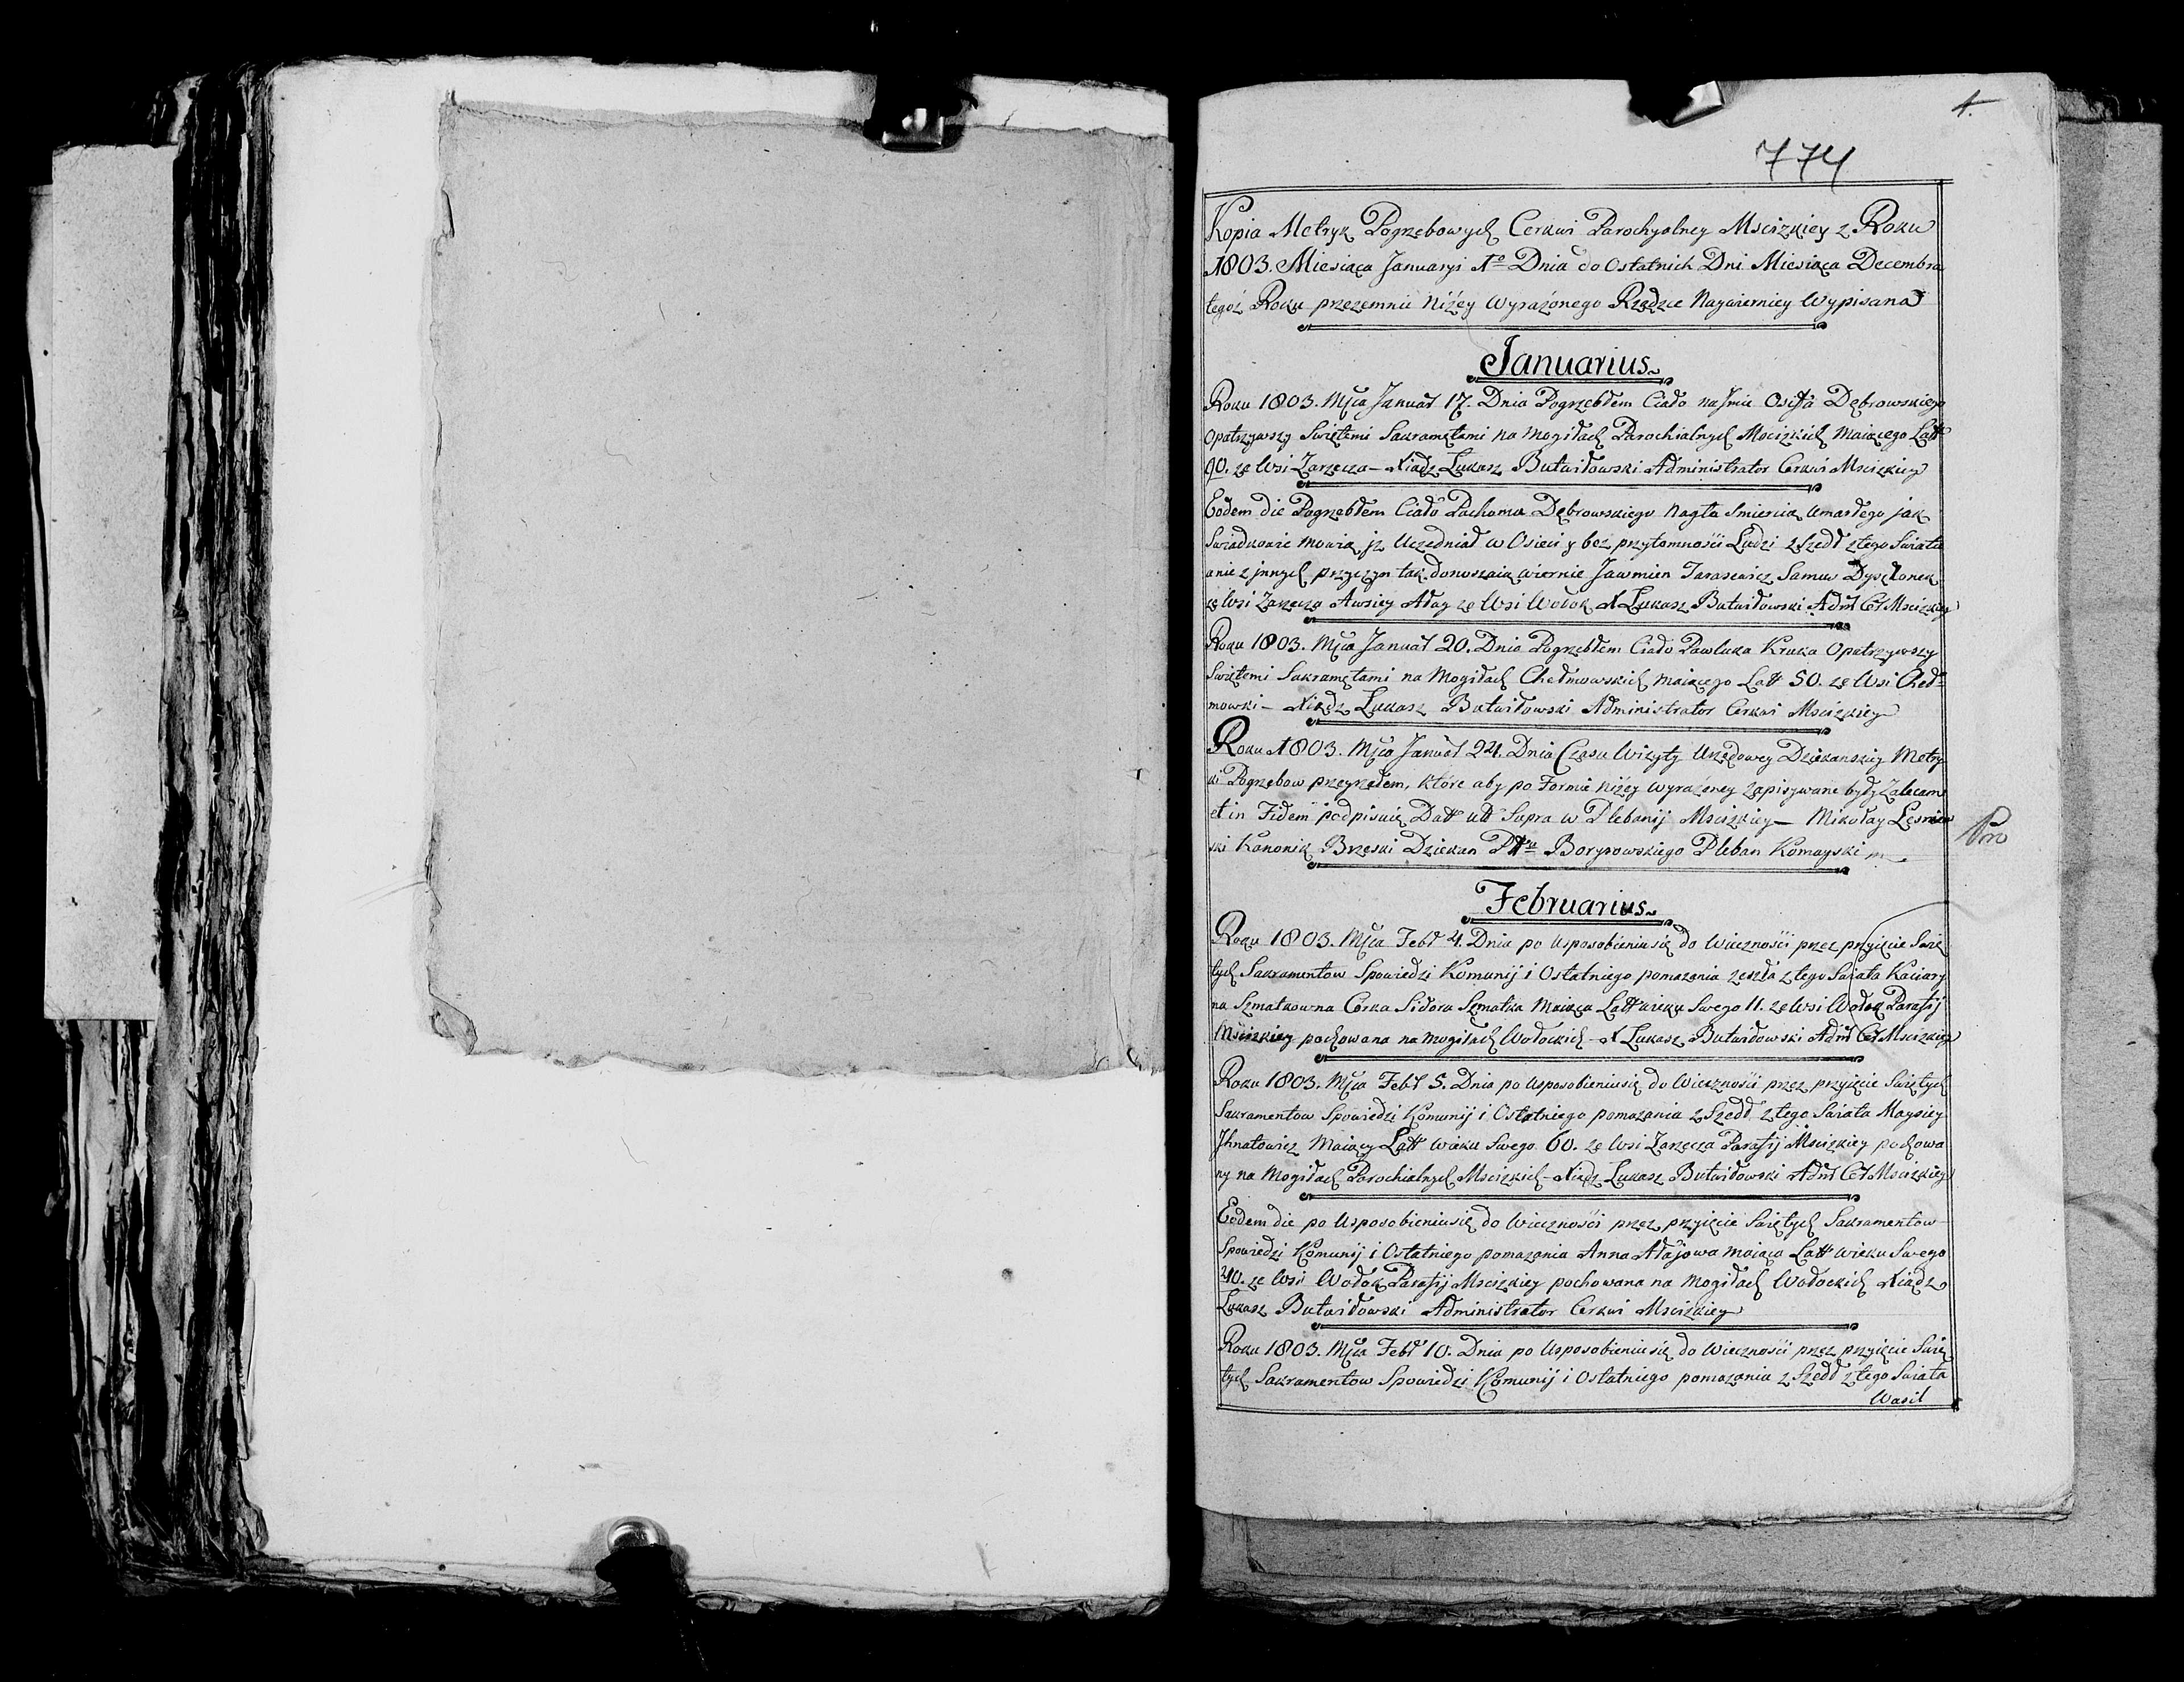 4.
774
Kopia Metryk Pogrzebowych Cerkwi Parochyalney Mscizkiey z Roku
1803. Miesiąca Januaryi 1o Dnia do Ostatnich Dni Miesiąca Decembra
tegoż Roku przezemnie Niżey Wyrażonego Rządzce Naywierniey Wypisana
Januarius
Roku 1803. Msca Januar 17. Dnia Pogrzebłem Ciało na Jmie Dębrowskiego
Opatrzywszy Swiętemi Sakramętami na Mogiłach Parochialnych Mscizkich Maiącego Latt
90. ze Wsi Zarzecza – Xiądz Łukasz Butwiłowski Administrator Cerkwi Mscizkiey
Eodem die Pogrzebłem Ciało Pachoma Dębrowskiego Nagłą Smiercią Umarłego jak
Swiadkowie mowią jż Uczedniał w Osieci y bez przytomności Ludzi zszedł z tego Swiata
a nie z jnnych przyczyn tak donoszaią wiernie Jawmien Tarasewicz Samuś
ze Wsi Zarzecza Awsiey Ałay ze Wsi Wołok X Łukasz Butwiłowski Admr Cer Mscizkiey
Roku 1803. Msca Januar 20. Dnia Pogrzebłem Ciało Pawluka Kruka Opatrzywszy
Swiętemi Sakramętami na Mogiłach Chełmowskich Maiącego Latt 50. ze Wsi Cheł=
mowki – Xiądz Łukasz Butwiłowski Administrator Cerkwi Mscizkiey
Roku 1803. Msca Januar 24. Dnia Czasu Wizyty Urzędowey Dziekanskiey Metry
ki Pogrzebow przeyrzałem, które aby po Formie niżey wyrażoney zapisywane były Zalecam
et in Fidem podpisuię Datt utt Supra w Plebanij Mscizkiey – Mikołay Lesniew
ski Kanonik Brzeski Dziekan Borysowskiego Pleban Komayski
Pro
Februarius
Roku 1803. Msca Febr 4. Dnia po Usposobieniu się do Wieczności przez przyięcie Swię
tych Sakramentow Spowiedzi Komunij i Ostatniego pomazania zeszła z tego Swiata Kaciary
na Szmatkowna Corka Sidora Szmatka Maiąca Latt wieku Swego 11. ze Wsi Wołok Parafij
Mscizkiey pochowana na mogiłach Wołockich – X Łukasz Butwiłowski Admr Cer Mscizkiey
Roku 1803. Msca Febr 5. Dnia po Usposobieniu się do Wieczności przez przyięcie Swiętych
Sakramentow Spowiedzi Komunij i Ostatniego pomazania zszedł z tego Swiata Maysiey
Jhnatowicz Maiący Latt wieku Swego 60. ze Wsi Zarzecza Parafij Mscizkiey pochowa
ny na Mogiłach Parochialnych Mscizkich – Xiądz Łukasz Butwiłowski Admr Cer Mscizkiey
Eodem die po Usposobieniu się do Wieczności przez przyięcie Swiętych Sakramentow
Spowiedzi Komunij i Ostatniego pomazania Anna Ałajowa maiąca Latt wieku Swego
40. ze Wsi Wołok Parafij Mscizkiey pochowana na Mogiłach Wołockich Xiądz
Łukasz Butwiłowski Administrator Cerkwi Mscizkiey
Roku 1803. Msca Febr 10. Dnia po Usposobieniu się do Wieczności przez przyięcie Swię
tych Sakramentow Spowiedzi Komunij i Ostatniego pomazania zszedł z tego Swiata
Wasil